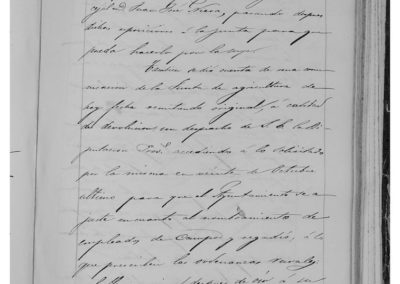 cejal D. Juan José Nieva, pasando despues
dichas oposiciones á la Junta para que
pueda hacerlo por la suya.
Tambien se dió cuenta de una comu-
nicacion de la Junta de agricultura de
hoy fecha remitiendo original, á calidad
de devolucion un despacho de S. E. la Di-
putacion Prov.l accediendo á lo solicitado
por la misma en veinte de Octubre
ultimo para que el Ayuntamiento se a-
juste en cuanto al nombramiento de
empleados de Campos y regadio, á lo
que prescriben las ordenanzas rurales